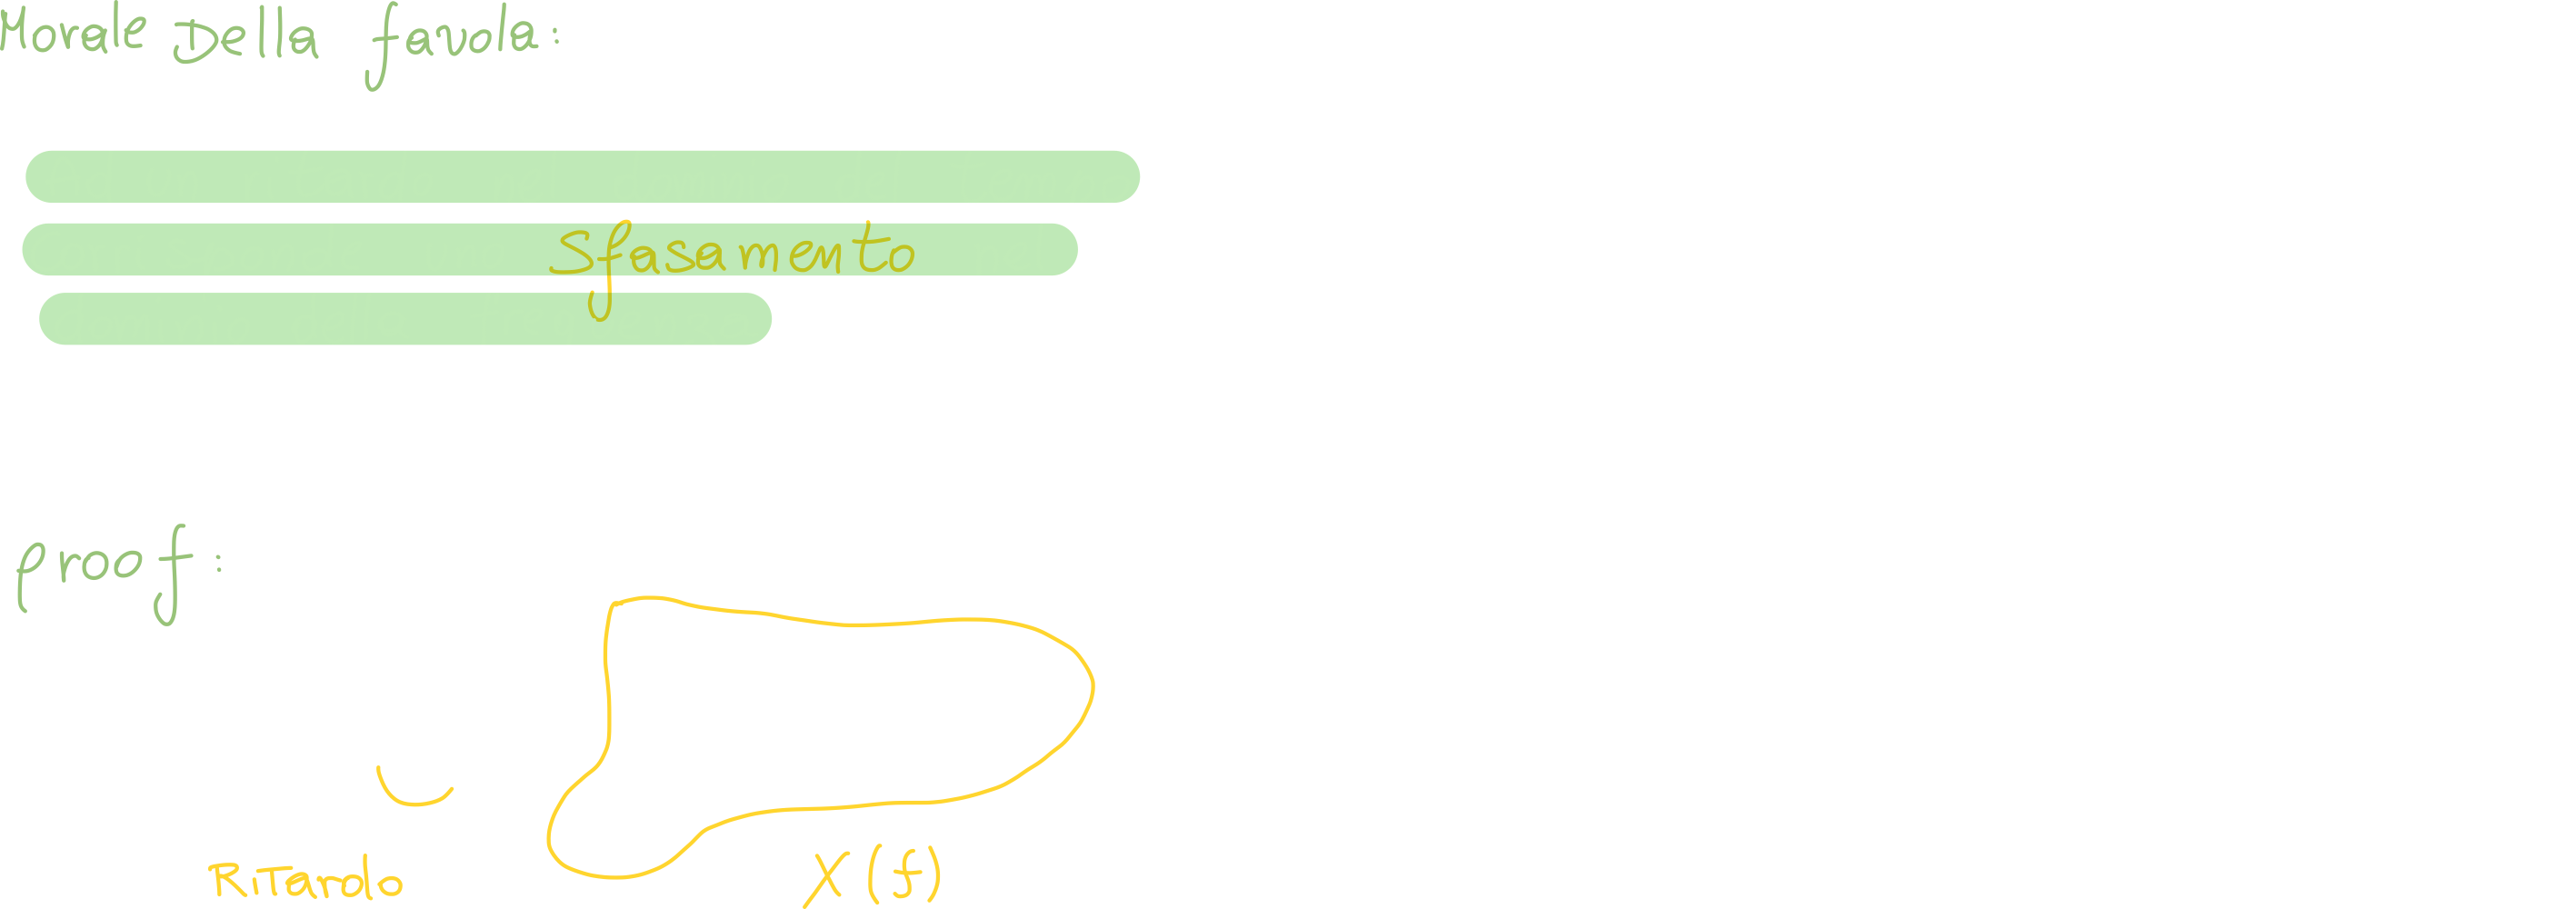 Morale Della favola:
Sfasamento
proof:
RiTardo
X(f)